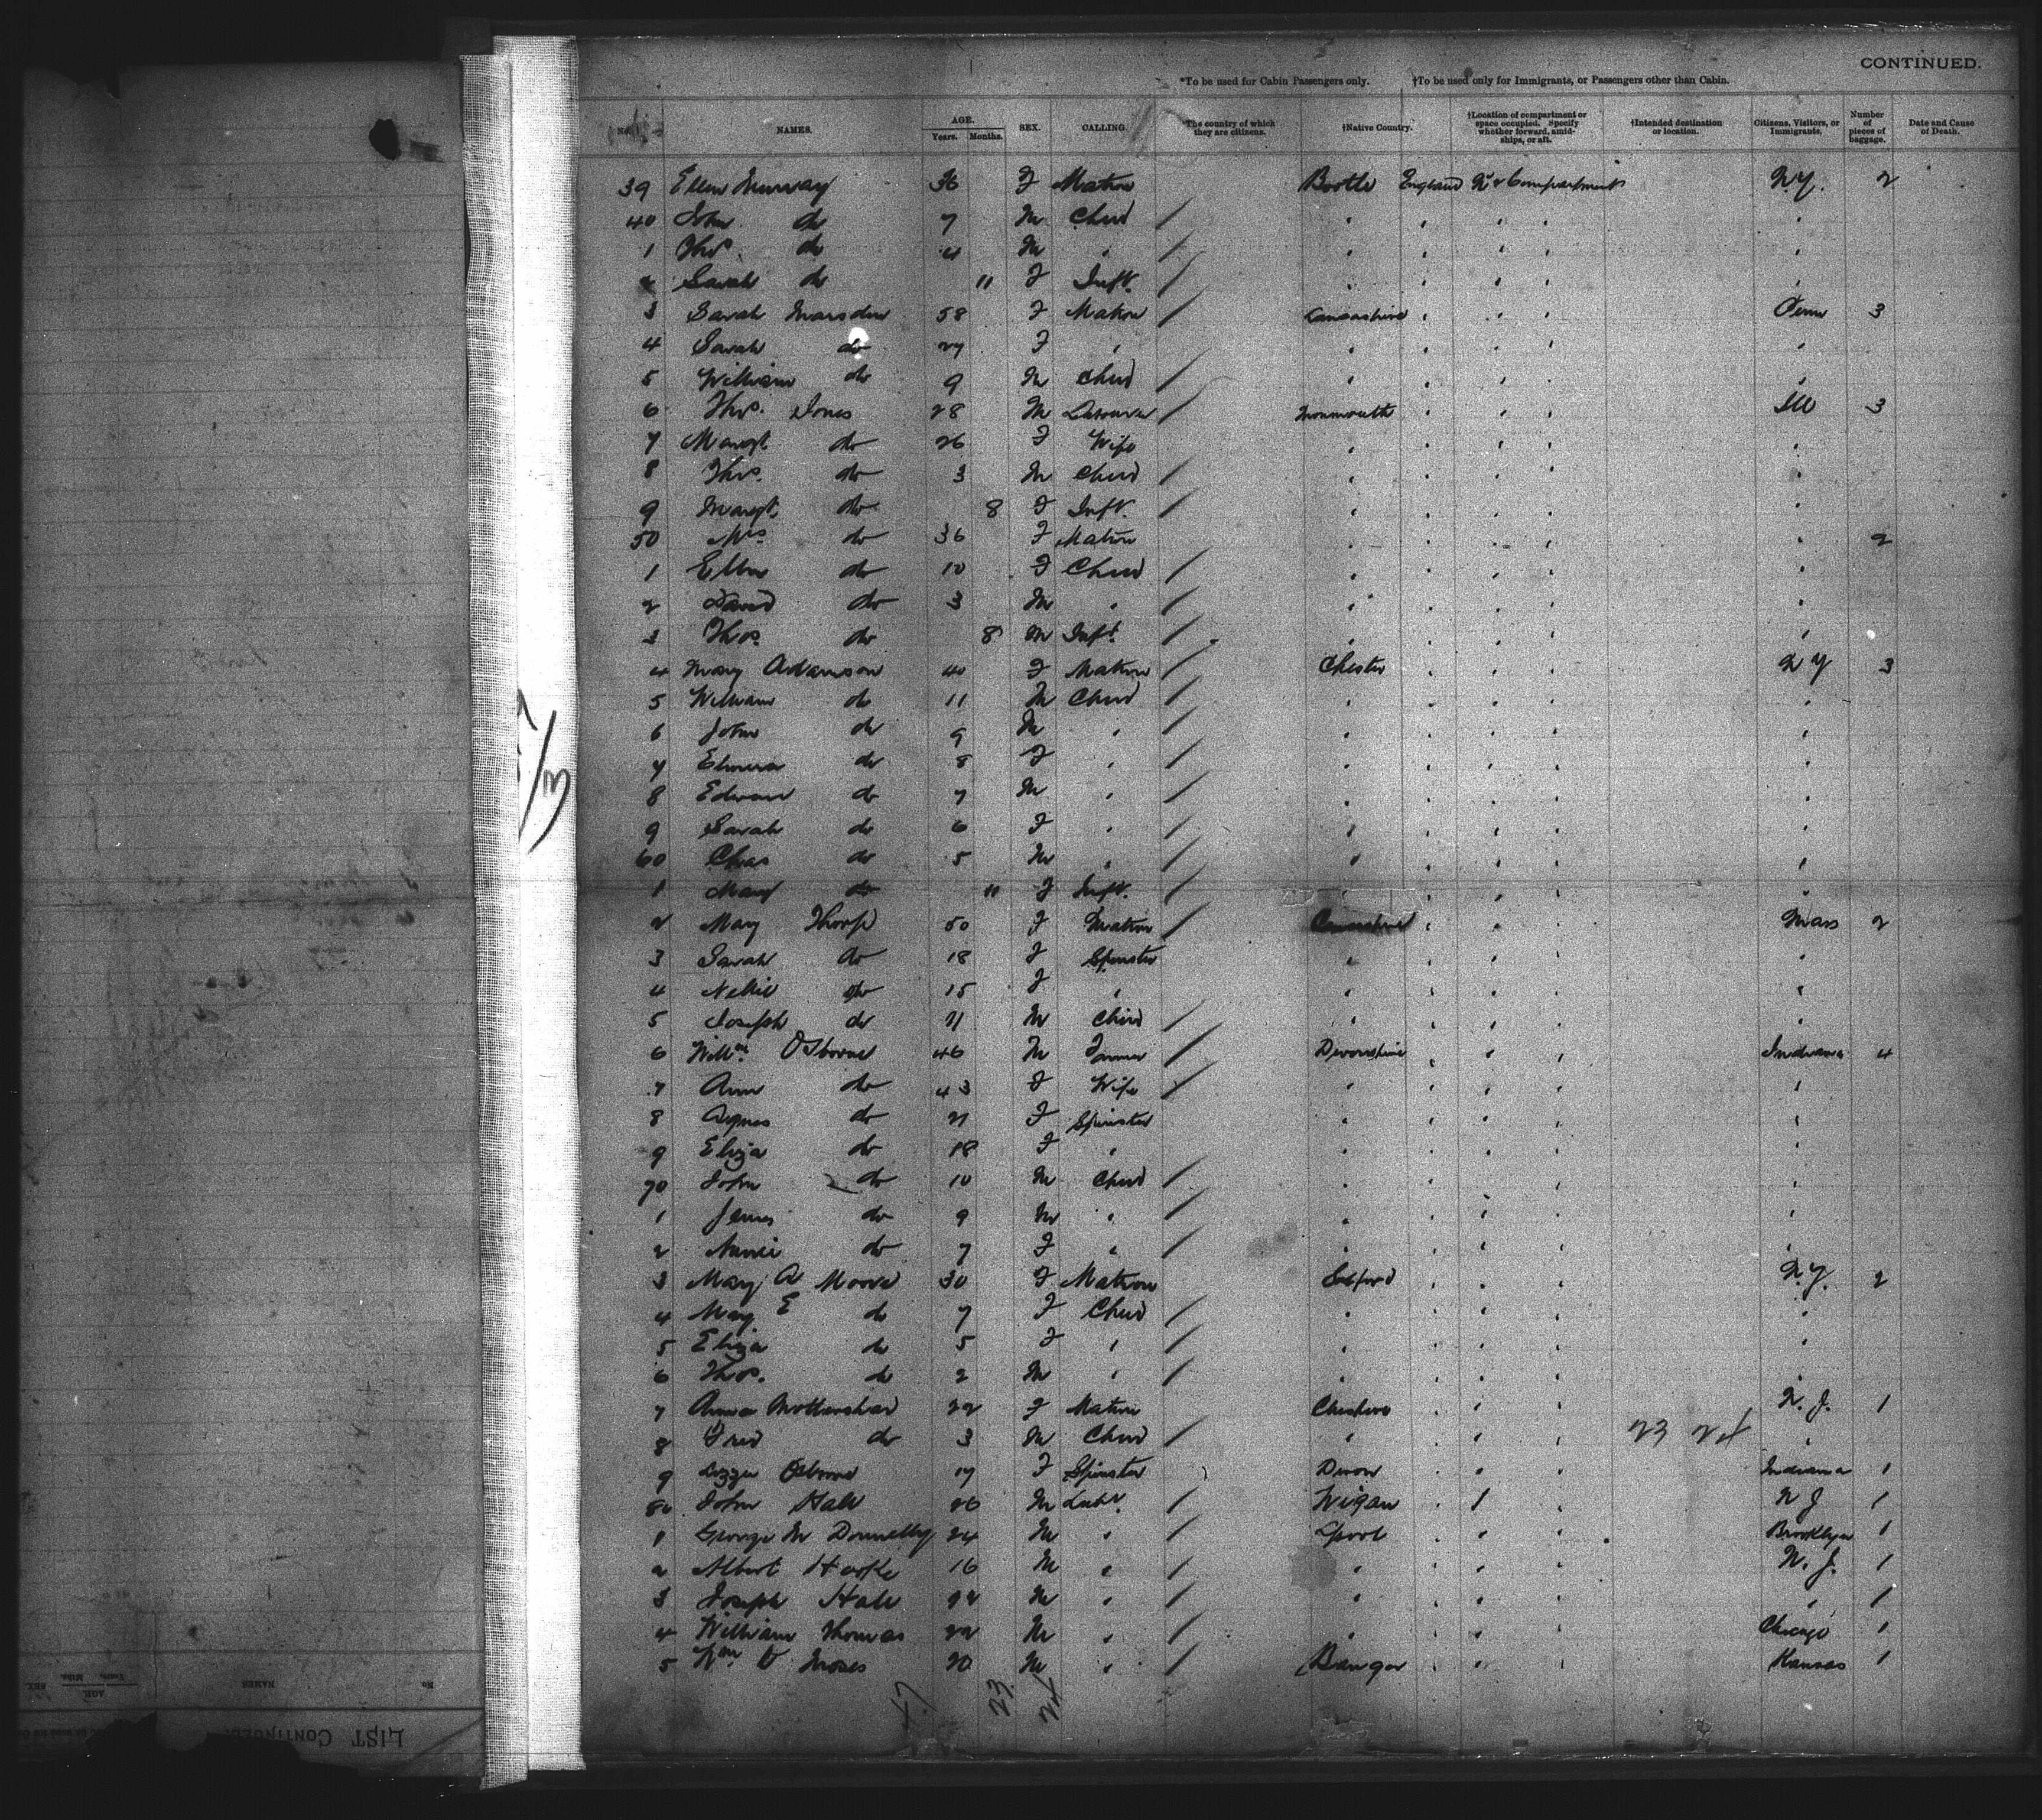 CONTINUED.
*To be used for Cabin Passengers only. †To be used only for Immigrants, or Passengers other than Cabin.
No. NAMES. AGE. Years. Months. SEX. CALLING. *The country of which they are citizens. †Native Country. †Location of compartment or space occupied. Specify whether forward, amidships, or aft. †Intended destination or location. Citizens, Visitors, or Immigrants. Number of pieces of baggage. Date and Cause of Death.
39 Ellen Murray 36 F Matron Bootle England Compartment N.Y. 2
40 John do 7 M Child
1 Thos. do 4 M "
2 Sarah do 11 F Inft.
3 Sarah Marsden 58 F Matron Lancashire Penn 3
4 Sarah do 27 F "
5 William do 9 M Child
6 Thos. Jones 28 M Labourer Monmouth Ill 3
7 Margt. do 26 F Wife
8 Thos. do 3 M Child
9 Margt. do 8 F Inft.
50 Mrs do 36 F Matron 2
1 Ellen do 10 F Child
2 David do 3 M "
3 Thos. do 8 M Inft.
4 Mary Adamson 40 F Matron Chester N.Y. 3
5 William do 11 M Child
6 John do 9 M "
7 do 8 F "
8 Edward do 7 M "
9 Sarah do 6 F "
60 Chas do 5 M "
1 Mary do 11 F Inft.
2 Mary Thorp 50 F Matron Mass 2
3 Sarah do 18 F Spinster
4 Nellie do 15 F "
5 Joseph do 11 M Child
6 Willm. Osborne 46 M Farmer Devonshire Indiana 4
7 Ann do 43 F Wife
8 Agnes do 21 F Spinster
9 Eliza do 18 F "
70 John do 10 M Child
1 James do 9 M "
2 do 7 F "
3 Mary A Moore 30 F Matron N.Y. 2
4 Mary E do 7 F Child
5 Eliza do 5 F "
6 Thos. do 2 M "
7 Anna Mottershead 22 F Matron Cheshire N.J. 1
8 Fred do 3 M Child 23 24
9 Lizzie Osborne 17 F Spinster Devon Indiana 1
80 John Hall 26 M Labr. Wigan N J 1
1 George M Donnelly 24 M " Lpool Brooklyn 1
2 Albert Hooke 16 M " N.J. 1
3 Joseph Hall M " 1
4 William Thomas 22 M " Chicago 1
5 Wm Moses 20 M " Bangor Kansas 1
17 23 24
LIST CONTINUED